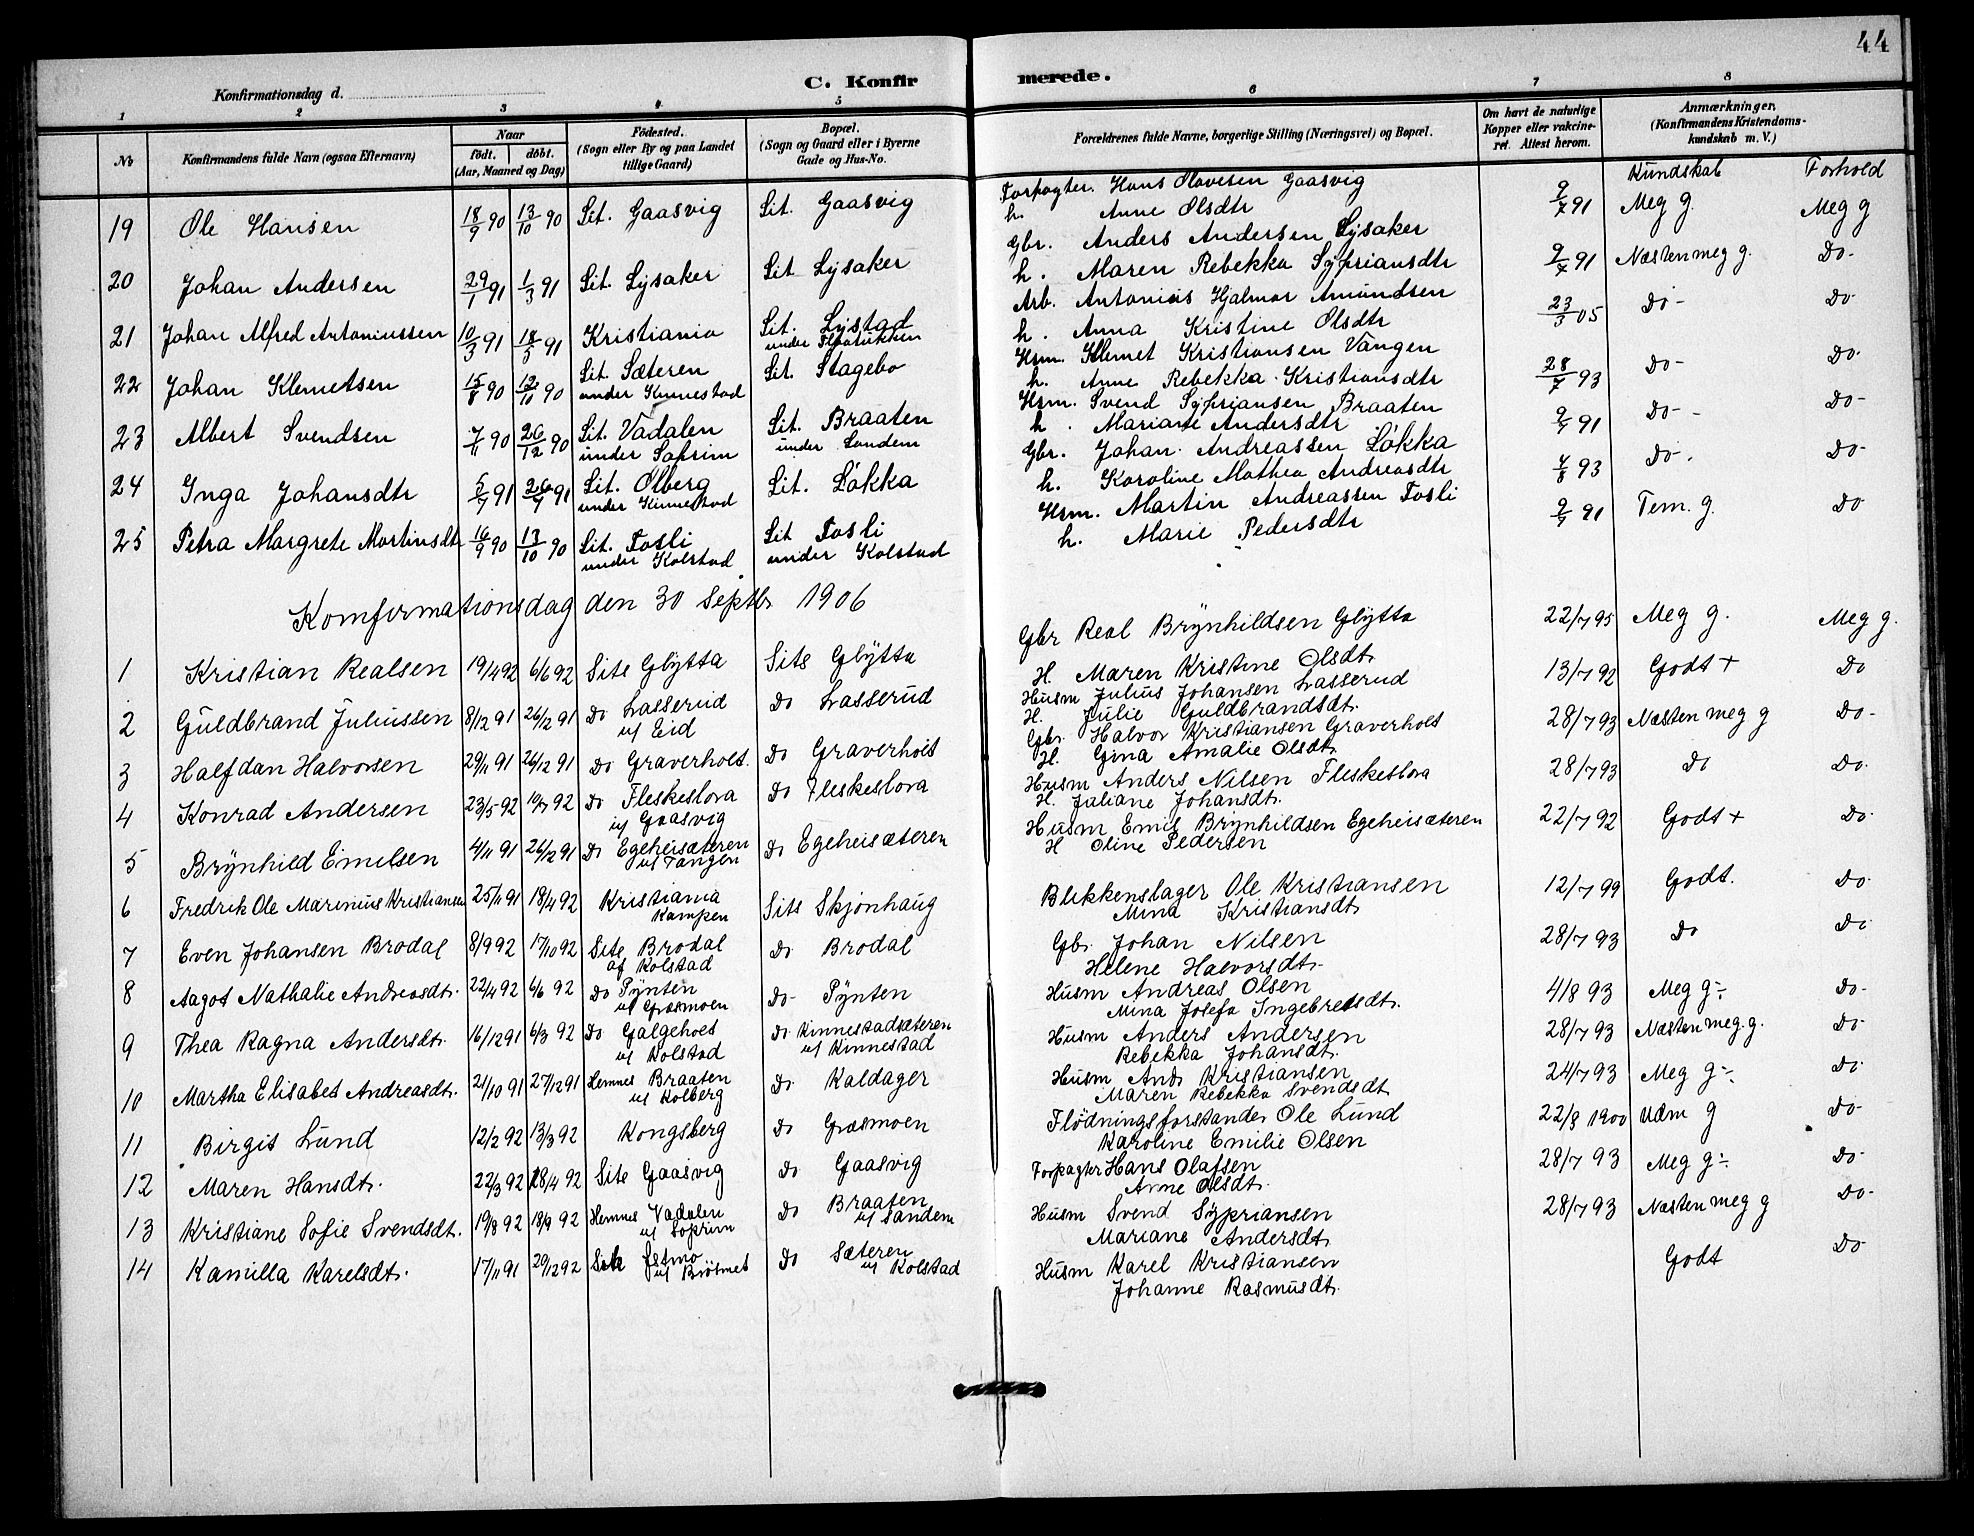 44
C. Konfirmerede.
Konfirmationsdag d.
1 2 3 4 5 6 7 8
No
Konfirmandens fulde Navn (ogsaa Efternavn)
Naar
født. døbt.
(Aar, Maaned og Dag)
Fødested.
(Sogn eller By og paa Landet
tillige Gaard)
Bopæl.
(Sogn og Gaard eller i Byerne
Gade og Hus-No.
Forældrenes fulde Navne, borgerlige Stilling (Næringsvei) og Bopæl.
Om havt de naturlige
Kopper eller vakcine-
ret. Attest herom.
Anmærkninger.
(Konfirmandens Kristendoms-
kundskab m. V.)
Kundskab Forhold
19 Ole Hansen 18/9 90 13/10 90 Sit. Gaasvig Sit. Gaasvig Forpagter. Hans Olavesen Gaasvig 9/7 91 Meg g. Meg g
h. Anne Olsdtr
20 Johan Andersen 29/1 91 1/3 91 Sit. Lysaker Sit Lysaker Gbr. Anders Andersen Lysaker 9/7 91 Næsten meg g. Do-
h. Maren Rebekka Syprian​sdtr
21 Johan Alfred Antoniussen 10/3 91 18/5 91 Kristiania Sit. Lystad Arb. Antonius Hjalmar Amundsen 23/3 05 Do- Do-
under
h. Anna Kristine Olsdtr
22 Johan Klemetsen 15/8 90 12/10 90 Sit. Sæteren Sit. Stagebo Hsm. Klemet Kristiansen Vangen 28/7 93 Do- Do-
under Kinnestad
h. Anne Rebekka Kristiansdtr
23 Albert Svendsen 7/11 90 26/12 90 Sit. Vadalen Sit. Braaten Hsm. Svend Sypriansen Braaten 9/7 91 Do- Do-
under Soprim under Sandem
h. Mariane Andersdtr
24 Inga Johansdtr 5/7 91 26/7 91 Sit. Ølberg Sit. Løkka Gbr. Johan Andreassen Løkka 4/8 93 Do-. Do-
under Kinnestad
h. Karoline Mathea Andreasdtr
25 Petra Margrete Martinsdtr 16/9 90 13/10 90 Sit. Tosli Sit Tosli Hsm. Martin Andreassen Tosli 9/7 91 Tem. g. Do
under Kolstad under Kolstad
h. Marie Pedersdtr
Komfirmationsdag den 30 Septbr 1906
1 Kristian Realsen 19/4 92 6/6 92 Sits Glytta Sits Glytta Gbr Real Brynhildsen Glytta 22/7 95 Meg g. Meg g.
H. Maren Kristine Olsdtr
2 Guldbrand Juliussen 8/12 91 26/12 91 Do Lasserud Do Lasserud Husm Julius Johansen Lasserud 13/7 92 Godt + Do
u/ Eid
H. Julie Guldbrandsdtr.
3 Halfdan Halvorsen 29/11 91 26/12 91 Do Graverholt Do Graverholt Gbr. Halvor Kristiansen Graverholt 28/7 93 Næsten meg g Do-
H. Gina Amalie Olsdtr
4 Konrad Andersen 23/5 92 10/7 92 Do Fleskeslora Do Fleskeslora Husm Anders Nilsen Fleskeslora 28/7 93 Do Do.
u/ Gaasvig
H. Juliane Johansdtr.
5 Brynhild Emilsen 4/11 91 26/12 91 Do Egeheisæteren Do Egeheisæteren Husm Emil Brynhildsen Egeheisæteren 22/7 92 Godt + Do-
u/ Tangen
H Oline Pedersen
6 Fredrik Ole Marinius Kristiansen 25/11 91 18/4 92 Kristiania Sits Skjønhaug Blikkenslager Ole Kristiansen 12/7 99 Godt. Do
Kampen
Mina Kristiansdtr
7 Even Johansen Brodal 8/9 92 17/10 92 Sits Brodal Do Brodal Gbr. Johan Nilsen 28/7 93 Do Do
af Kolstad
Helene Halvorsdtr.
8 Aagot Nathalie Andreasdtr. 22/4 92 6/6 92 Do Pynten Do- Pynten Husm Andreas Olsen 4/8 93 Meg g÷ Do-
u/ Græsmoen
Mina Josefa Ingebretsdtr.
9 Thea Ragna Andersdtr. 16/12 91 6/3 92 Do Galgeholt Do Kinnestadsæteren Husm Anders Andersen 28/7 93 Næsten meg. g. Do-
u/ Kolstad u/ Kinnestad
Rebekka Johansdtr.
10 Martha Elisabet Andreasdtr. 21/10 91 27/12 91 Hemnes Braaten Do. Kaldager Husm Andr Kristiansen 24/7 93 Meg g÷ Do
u/ Kolberg
Maren Rebekka Svendsdtr
11 Birgit Lund 12/2 92 13/3 92 Kongsberg Do Græsmoen Flødningsforstander Ole Lund 22/8 1900 Udm g Do-
Karoline Emilie Olsen
12 Maren Hansdtr. 22/3 92 18/4 92 Sits Gaasvig Do Gaasvig Forpagter Hans Olafsen 28/7 93 Meg g÷ Do-
Anne Olsdtr.
13 Kristiane Sofie Svendsdtr. 19/8 92 18/9 92 Hemnes Vadalen Do Braaten Husm Svend Sypriansen 28/7 93 Næsten meg g Do-
u/ Soprim u/ Sandem
Mariane Andersdtr
14 Kamilla Karelsdtr. 17/11 91 29/12 92 Sits Do Sæteren Husm Karel Kristiansen Godt Do
u/ u/ Kolstad
Johanne Rasmusdtr.